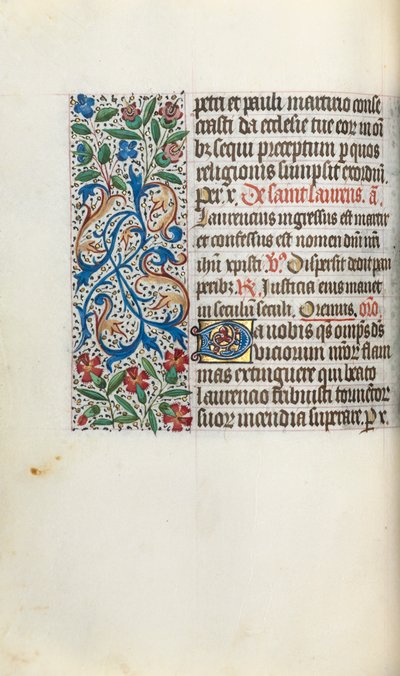 petri et pauli martirio conse
crasti da ecclesie tue eor in oi
bz sequi preceptum p quos
religionis sumpsit exordm.
Per x. De saint laurens. a.
Laurencius ingressus est martir
et confessus est nomen dni nri
ihu xpisti V. Dispersit dedit pau
peribz R. Justicia eius manet
in seculu seculi. Oremus. oro
Da nobis qs omps ds
viciorum nror flam
mas extinguere qui beato
laurencio tribuisti tormentor
suor incendia superare. p x.